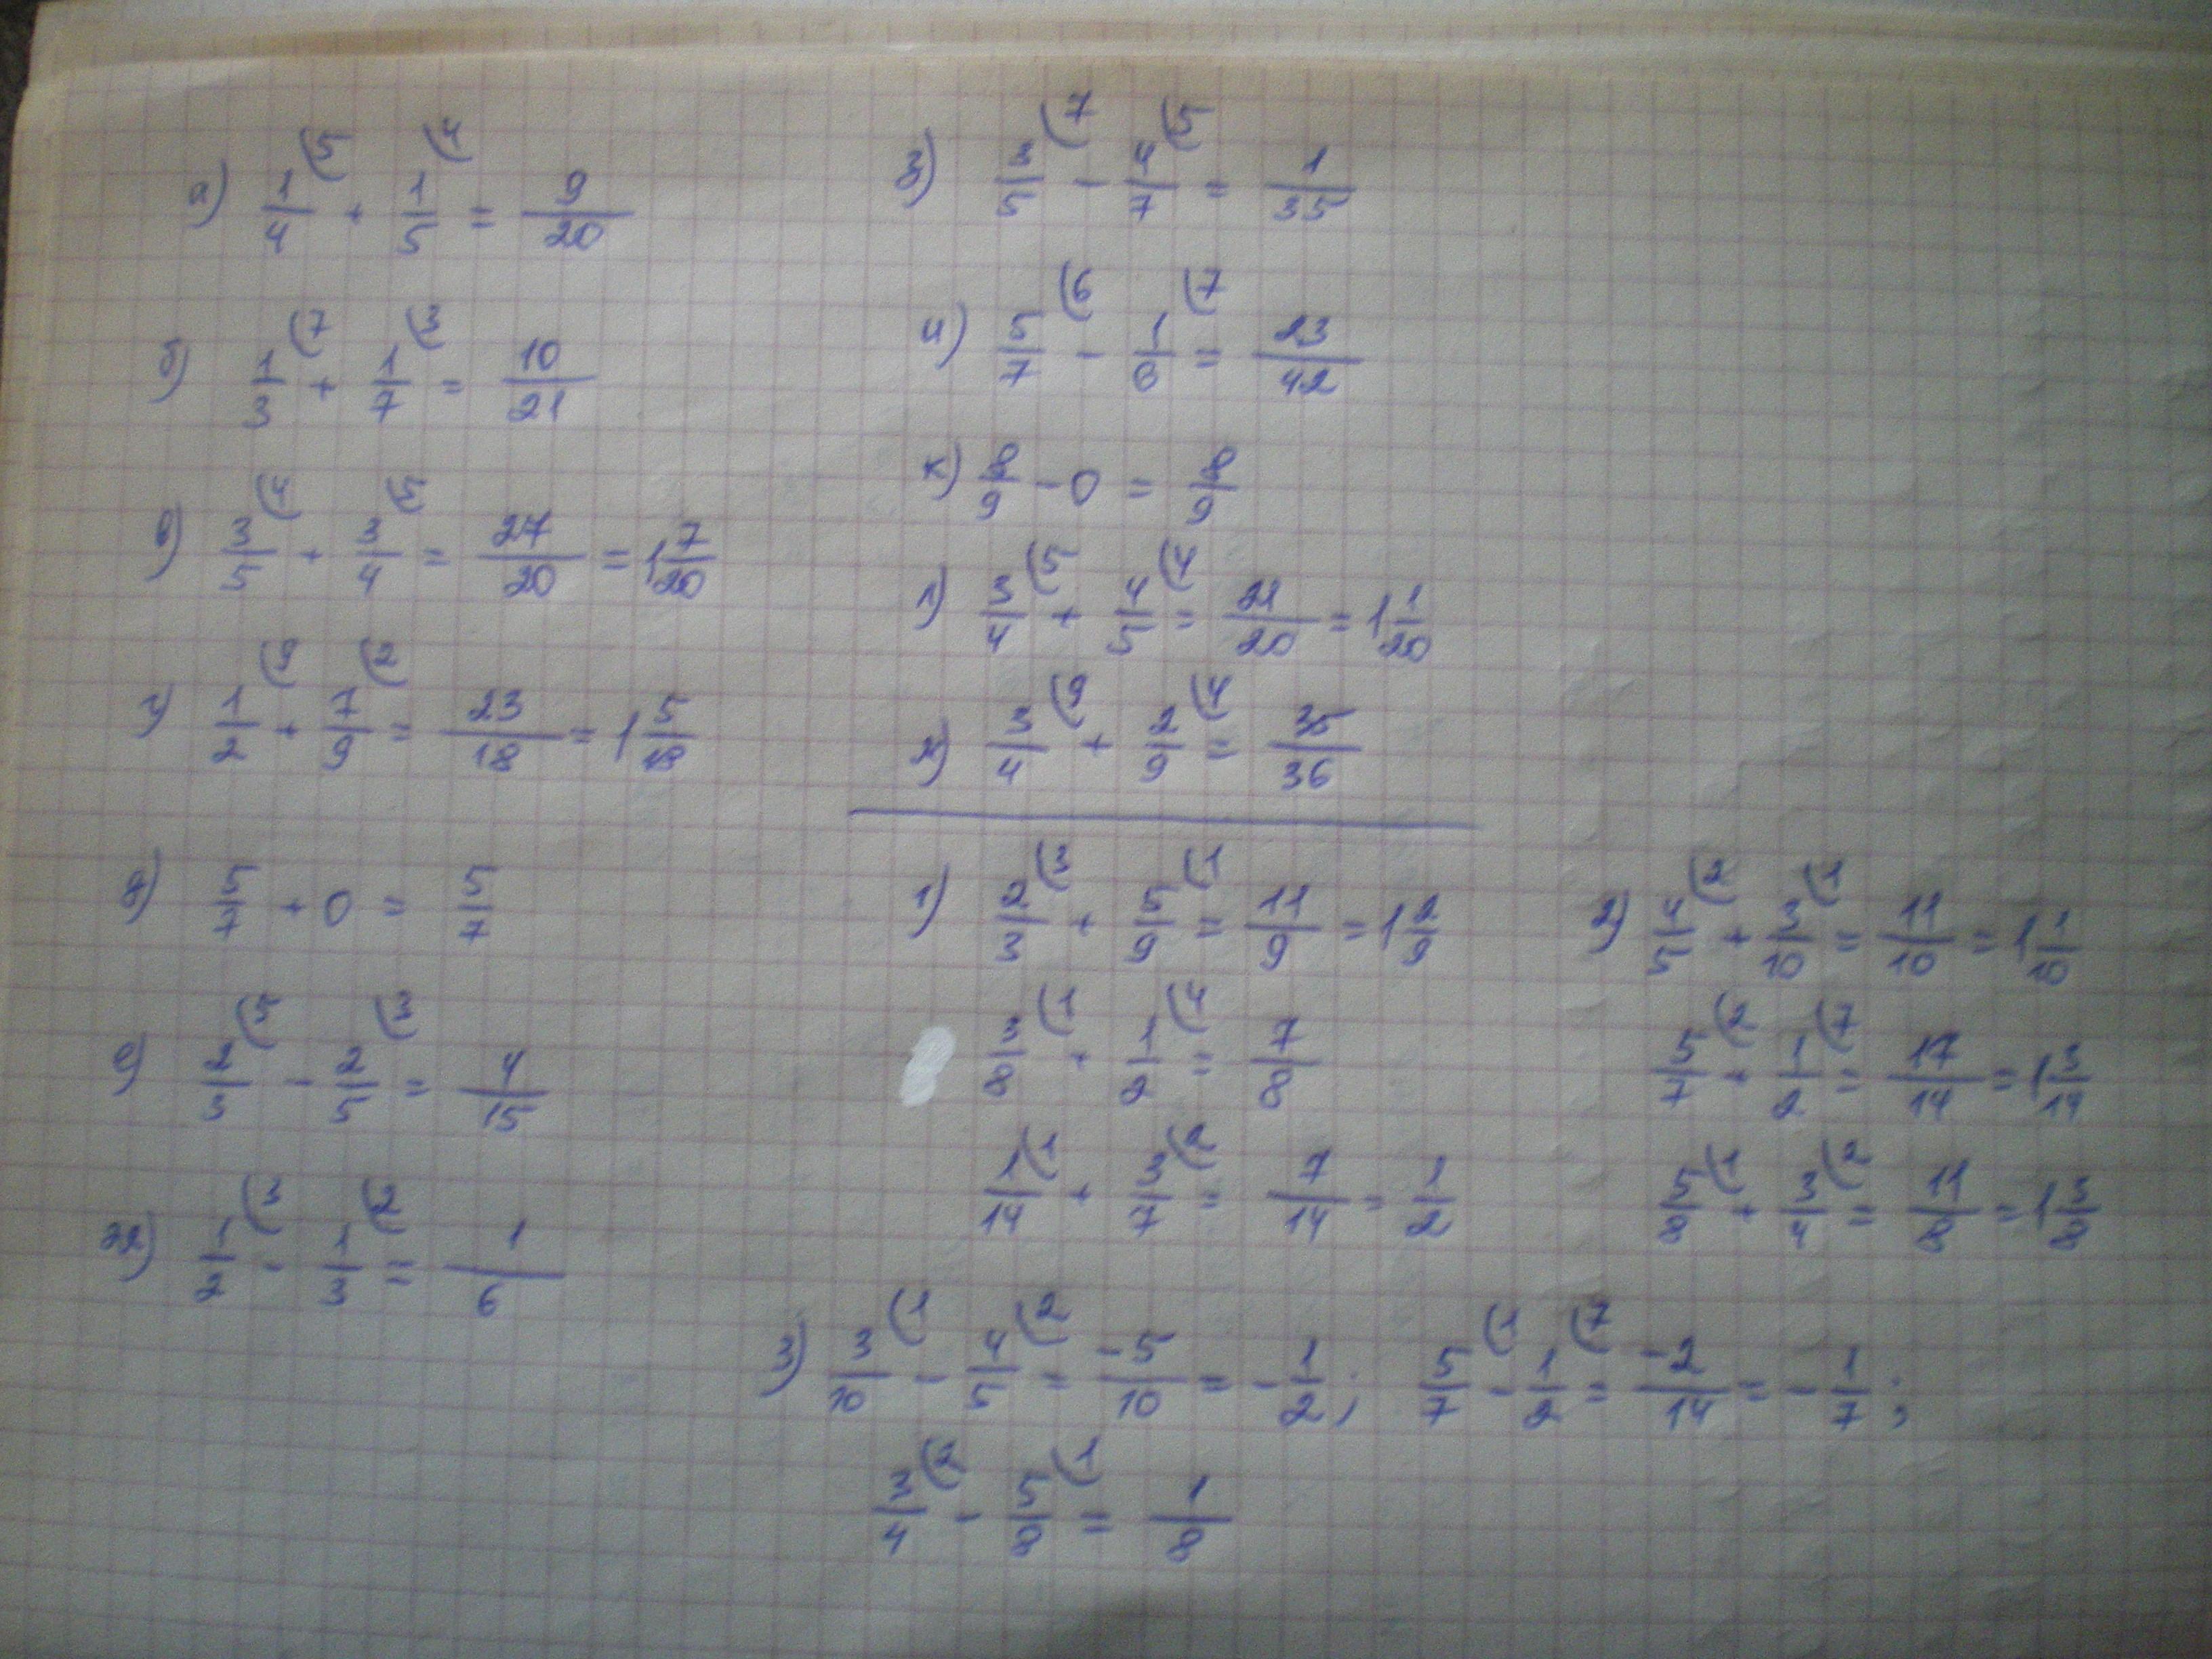 а) 1/4 (5 + 1/5 (4 = 9/20
б) 1/3 (7 + 1/7 (3 = 10/21
в) 3/5 (4 + 3/4 (5 = 27/20 = 1 7/20
г) 1/2 (9 + 7/9 (2 = 23/18 = 1 5/18
д) 5/7 + 0 = 5/7
е) 2/3 (5 - 2/5 (3 = 4/15
ж) 1/2 (3 - 1/3 (2 = 1/6
з) 3/5 (7 - 4/7 (5 = 1/35
и) 5/7 (6 - 1/6 (7 = 23/42
к) 8/9 - 0 = 8/9
л) 3/4 (5 + 4/5 (4 = 21/20 = 1 1/20
м) 3/4 (9 + 2/9 (4 = 35/36
1) 2/3 (3 + 5/9 (1 = 11/9 = 1 2/9
3/8 (1 + 1/2 (4 = 7/8
1/14 (1 + 3/7 (2 = 7/14 = 1/2
2) 4/5 (2 + 3/10 (1 = 11/10 = 1 1/10
5/7 (2 + 1/2 (7 = 17/14 = 1 3/14
5/8 (1 + 3/4 (2 = 11/8 = 1 3/8
3) 3/10 (1 - 4/5 (2 = -5/10 = - 1/2; 5/7 (1 - 1/2 (7 = -2/14 = - 1/7;
3/4 (2 - 5/8 (1 = 1/8